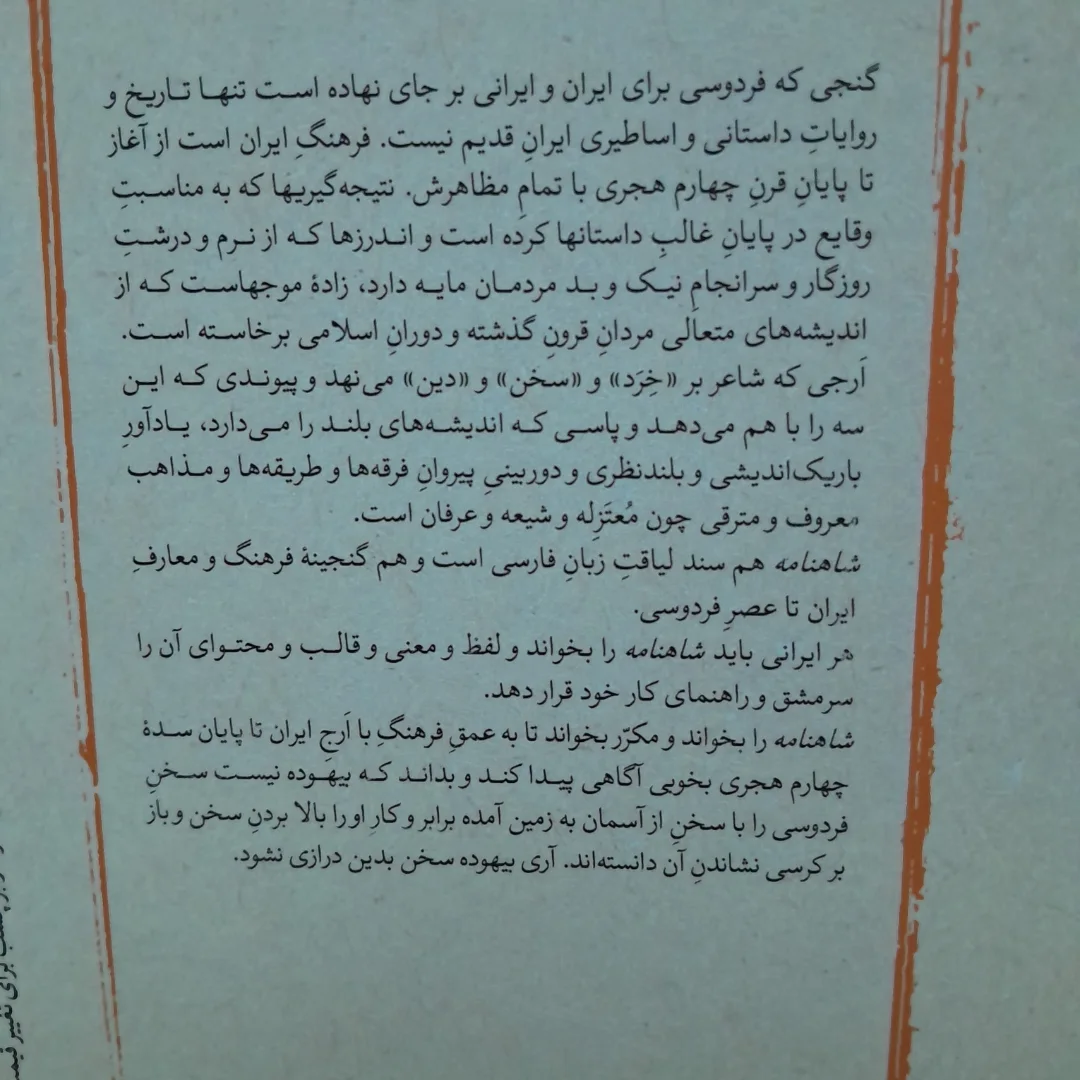 گنجی که فردوسی برای ایران و ایرانی بر جای نهاده است تنها تاریخ و
روایاتِ داستانی و اساطیری ایرانِ قدیم نیست. فرهنگِ ایران است از آغاز
تا پایانِ قرنِ چهارم هجری با تمامِ مظاهرش. نتیجه‌گیریها که به مناسبتِ
وقایع در پایانِ غالبِ داستانها کرده است و اندرزها که از نرم و درشتِ
روزگار و سرانجامِ نیک و بد مردمان مایه دارد، زادهٔ موجهاست که از
اندیشه‌های متعالی مردانِ قرونِ گذشته و دورانِ اسلامی برخاسته است.
اَرجی که شاعر بر «خِرَد» و «سخن» و «دین» می‌نهد و پیوندی که این
سه را با هم می‌دهد و پاسی که اندیشه‌های بلند را می‌دارد، یادآورِ
باریک‌اندیشی و بلندنظری و دوربینیِ پیروانِ فرقه‌ها و طریقه‌ها و مذاهب
معروف و مترقی چون مُعتَزِله و شیعه و عرفان است.
شاهنامه هم سند لیاقتِ زبانِ فارسی است و هم گنجینهٔ فرهنگ و معارفِ
ایران تا عصرِ فردوسی.
هر ایرانی باید شاهنامه را بخواند و لفظ و معنی و قالب و محتوای آن را
سرمشق و راهنمای کار خود قرار دهد.
شاهنامه را بخواند و مکرّر بخواند تا به عمقِ فرهنگِ با اَرجِ ایران تا پایان سدهٔ
چهارم هجری بخوبی آگاهی پیدا کند و بداند که بیهوده نیست سخنِ
فردوسی را با سخنِ از آسمان به زمین آمده برابر و کارِ او را بالا بردنِ سخن و باز
بر کرسی نشاندنِ آن دانسته‌اند. آری بیهوده سخن بدین درازی نشود.
برای تغییر